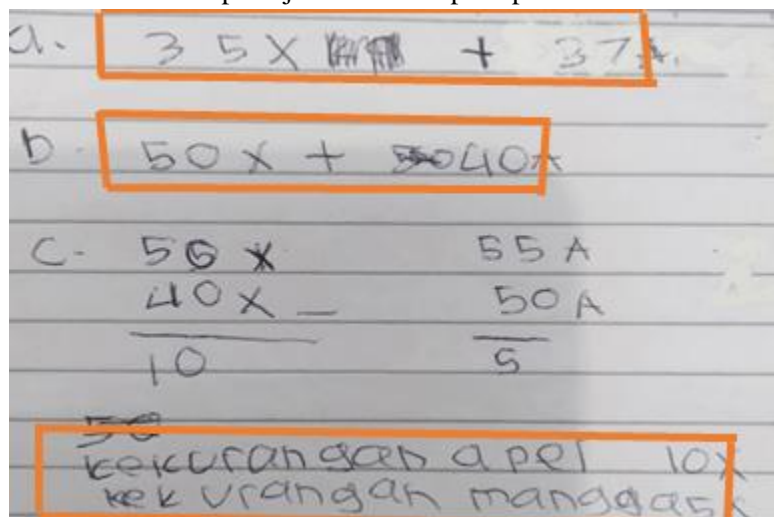 a. 35x + 37A.
b. 50x + 40A
c. 50x 55A
40x - 50A
10 5
50
kekurangan apel 10x
kekurangan mangga 5x